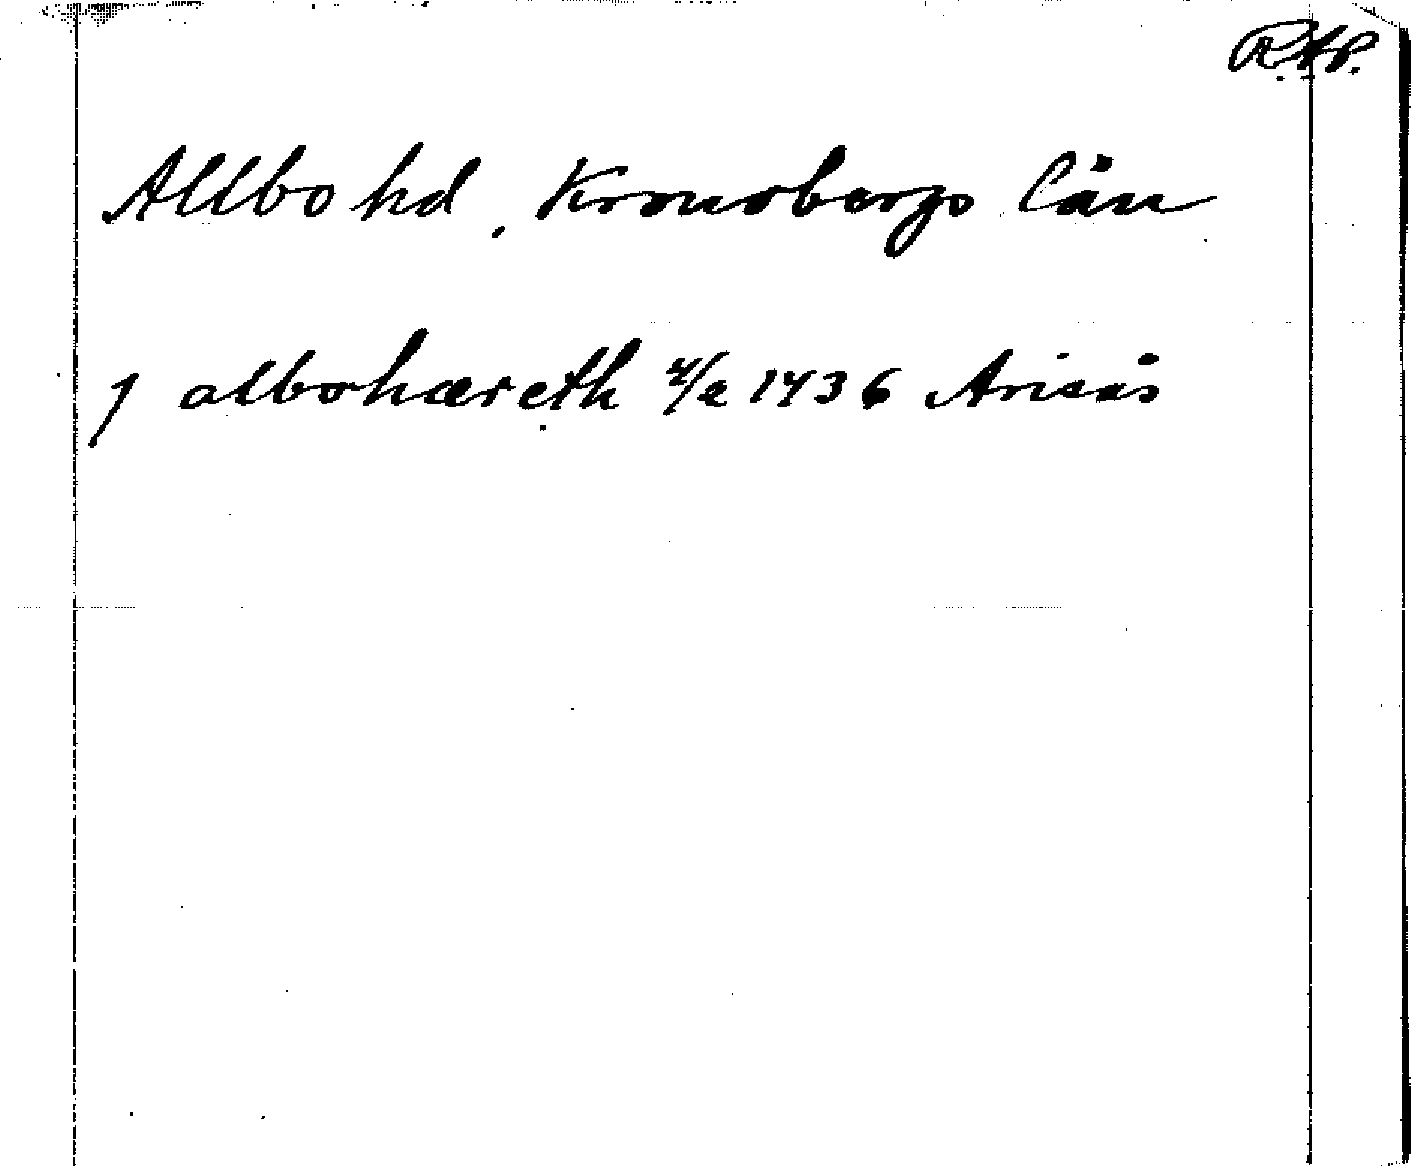 R.A.P.
Allbo hd, Kronobergs län
j albohæreth 4/2 1436 Arisås